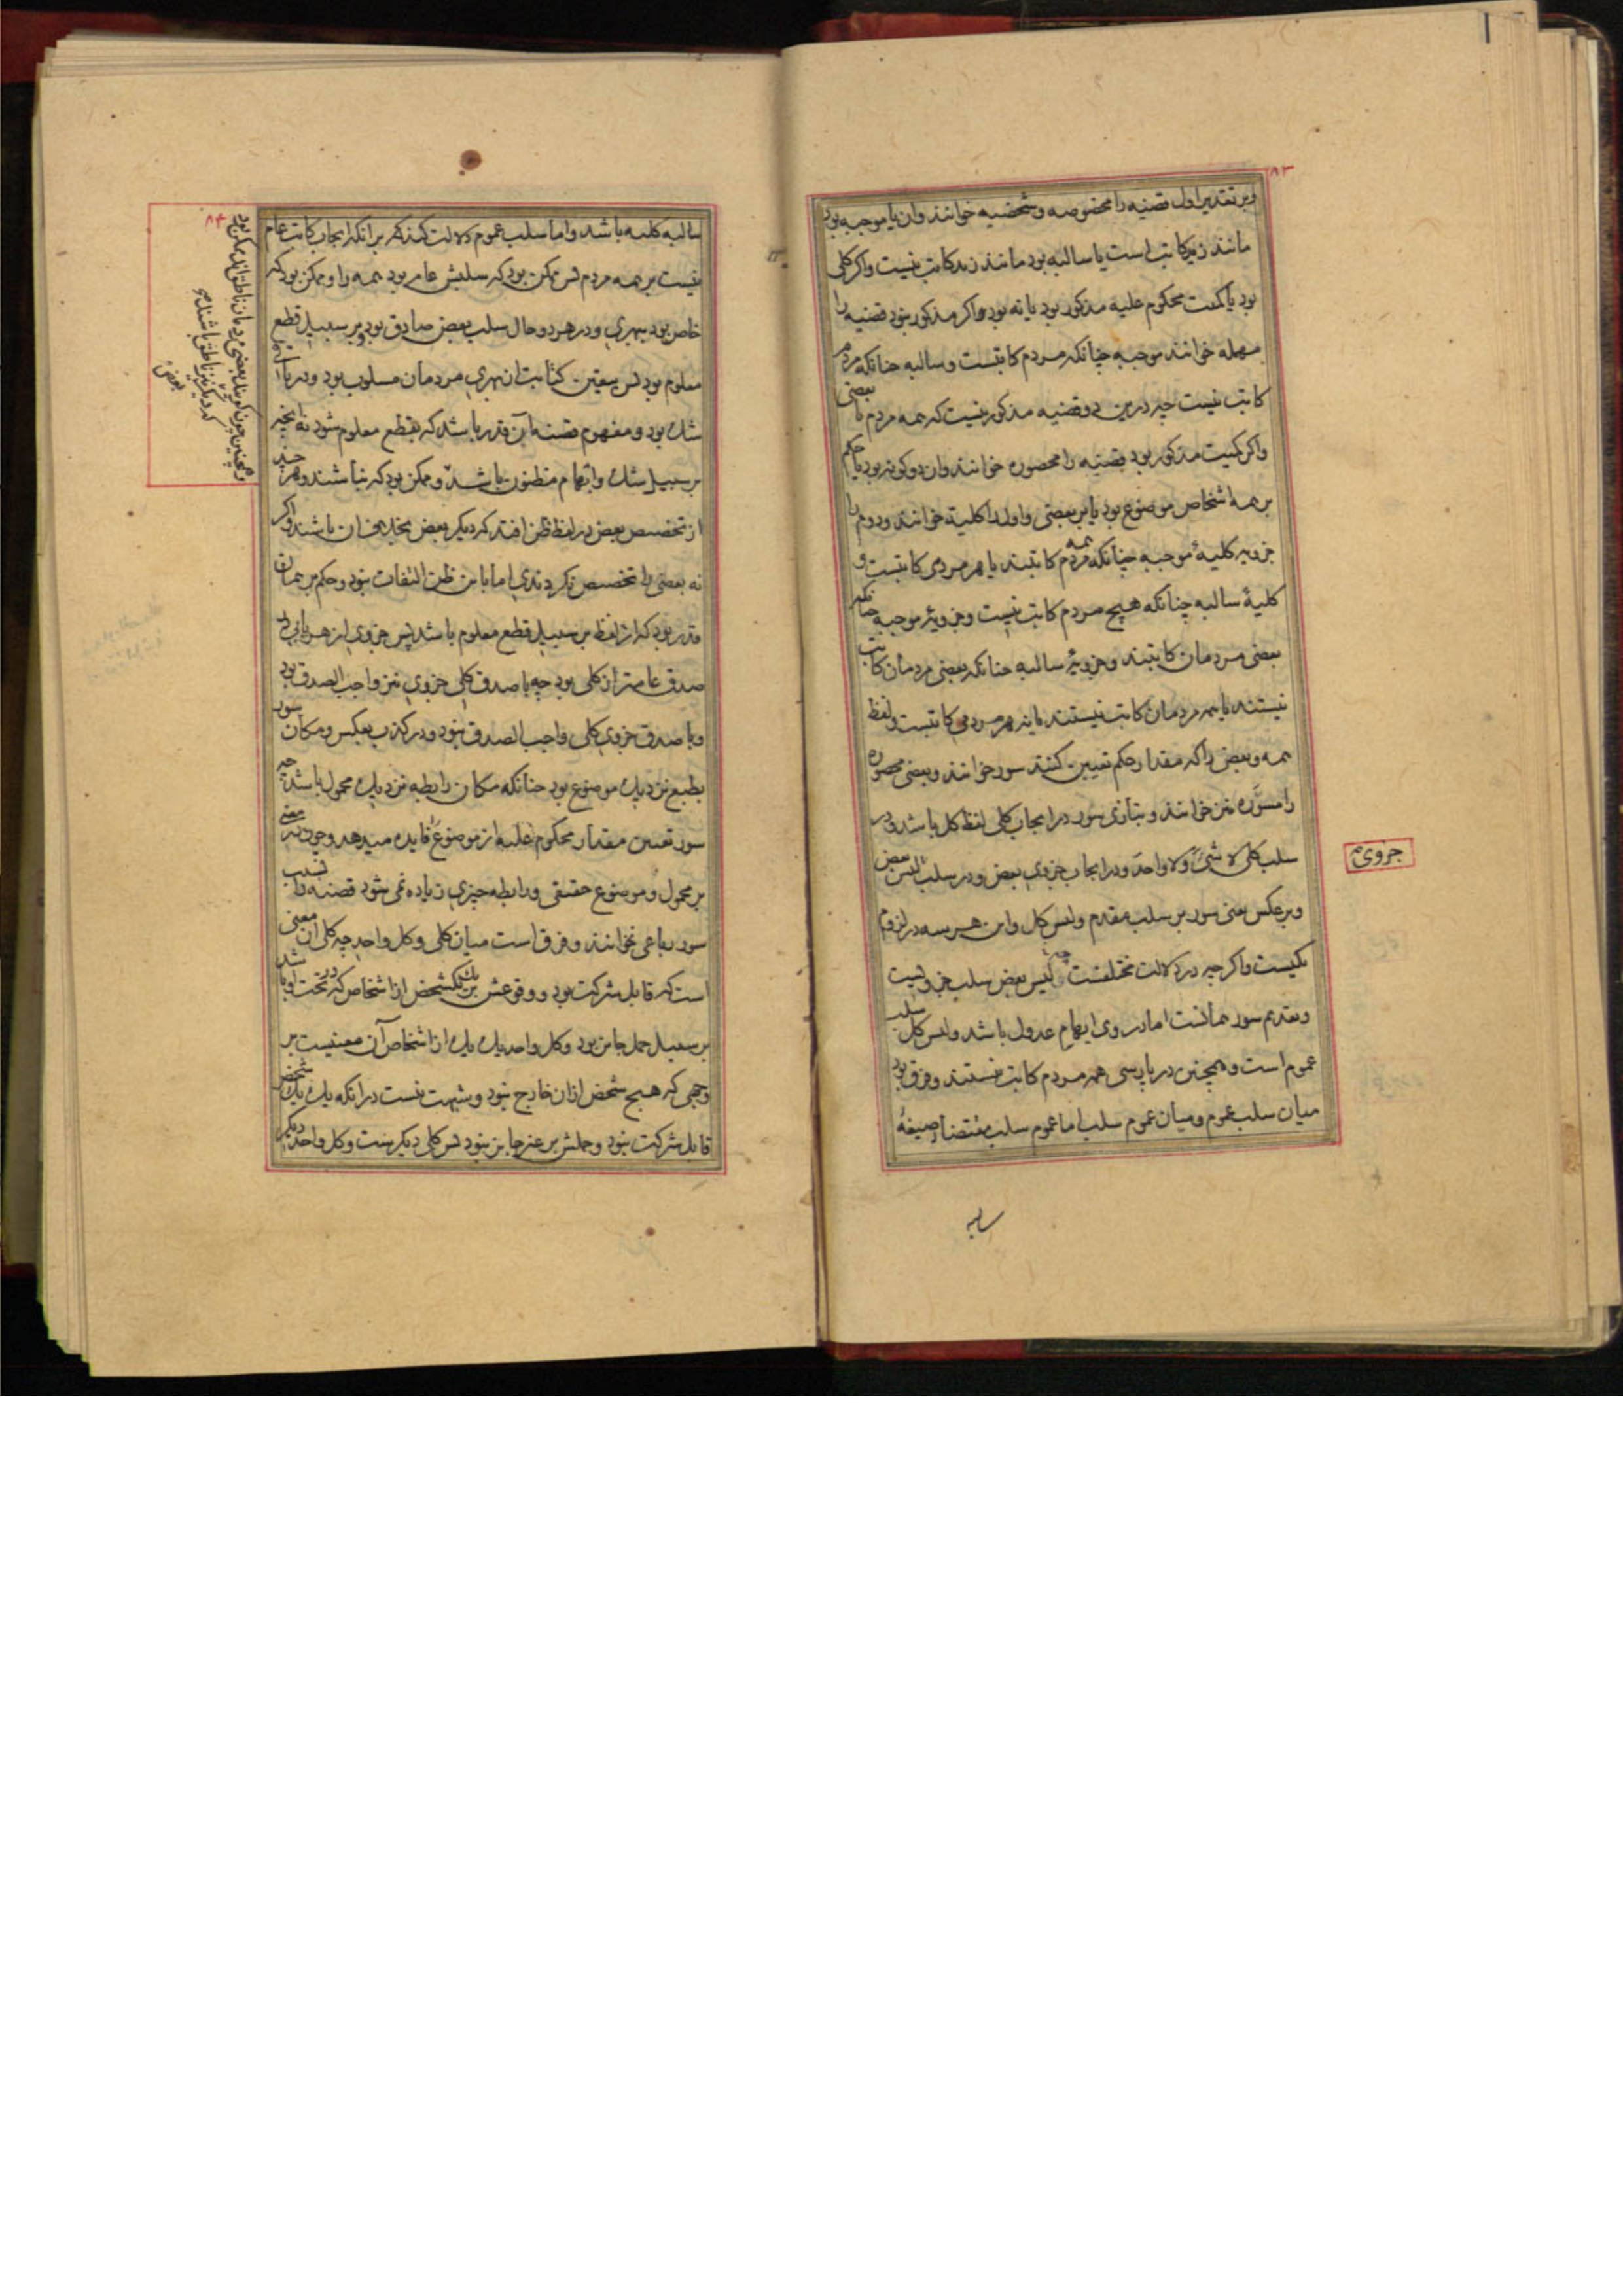 ٨٣
وبر تقدیر اول قضیه را مخصوصه و شخصیه خوانند وان یا موجبه بود
مانند زید کاتب است یا سالبه بود مانند زید کاتب نیست واکر کلی
بود یا کمیت محکوم علیه مذکور بود یا نه بود واکر مذکور نبود قضیه را
مهمله خوانند موجبه چنانکه مردم کاتبست و سالبه چنانکه مردم
کاتب نیست چه درین دو قضیه مذکور نیست که همه مردم یا بعضی
واکر کمیت مذکور بود قضیه را محصوره خوانند وان دو کونه بود یا حکم
بر همه اشخاص موضوع بود یا بر بعضی و اول را کلیة خوانند و دوم را
جزویه کلیهٔ موجبه چنانکه همه مردم کاتبند یا هر مردمی کاتبست و
کلیهٔ سالبه چنانکه هیچ مردم کاتب نیست و جزویهٔ موجبه چنانکه
بعضی مردمان کاتبند و جزویهٔ سالبه چنانکه بعضی مردمان کاتب
نیستند یا همه مردمان کاتب نیستند یا نه هر مردمی کاتبست و لفظ
همه و بعض را که مقدار حکم تعیین کنند سور خوانند و بعضی محصوره
را مسوّره نیز خوانند و بتازی سور در ایجاب کلی لفظ کل باشد و در
سلب کلی لا شئ و لا واحد و در ایجاب جزوی بعض و در سلب لیس بعض
جزوی
و برعکس یعنی سور بر سلب مقدم و لیس کل و این هر سه در لزوم
یکیست و اکر چه در دلالت مختلفست چه لیس بعض سلب جزویست
و تقدیم سور همانست اما در وی ایهام عدول باشد و لیس کل سلب
عموم است و همچنین در پارسی همه مردم کاتب نیستند و فرق بود
میان سلب عموم و میان عموم سلب اما عموم سلب مقتضا صیغهٔ
سالبه
٨٤
سالبه کلیه باشد و اما سلب عموم دلالت کند بر انکه ایجاب کاتب عام
نیست بر همه مردم پس ممکن بود که سلبش عام بود همه را و ممکن بود که
خاص بود ببهری و در هر دو حال سلب بعض صادق بود و بر سبیل قطع
معلوم بود پس بیقین کتابت از بهری مردمان مسلوب بود و در باقی
شک بود و مفهوم قضیه آن قدر باشد که بقطع معلوم شود نه آنچه
بر سبیل شک و ابهام مظنون باشد و ممکن بود که نباشند و هر چند
از تخصیص بعض در لفظ ظن افتد که دیکر بعض بخلاف ان باشند و اکر
نه بعضی را تخصیص نکردندی اما باین ظن التفات نبود و حکم بر همان
قدر بود که از لفظ بر سبیل قطع معلوم باشد پس جزوی از هر بابی در
صدق عامتر از کلی بود چه با صدق کلی جزوی نیز واجب الصدق بود
و با صدق جزوی کلی واجب الصدق نبود و در کذب بعکس و مکان سور
بطبع نزدیک موضوع بود چنانکه مکان رابطه نزدیک محمول باشد چه
سور تعیین مقدار محکوم علیه از موضوع فایده میدهد و چون معنی
بر محمول و موضوع حقیقی و رابطه چیزی زیاده نمی شود قضیه را بسبب
سور رباعی نخوانند و فرق است میان کلی و کل واحد چه کلی ان معنی
است که قابل شرکت بود و وقوعش بر یک یک شخص از اشخاص که در تحت او باشد
بر سبیل حمل جایز بود و کل واحد یک یک از اشخاص آن معنیست بر
وجهی که هیچ شخص ازان خارج نبود و شبهت نیست در انکه یک یک شخص
قابل شرکت نبود و حملش بر غیر جایز نبود پس کلی دیکر ست و کل واحد دیکر
و همچنین چون کویند بعضی مردمان ناطق اند ممکن بود
که دیکر بعض نیز ناطق باشند